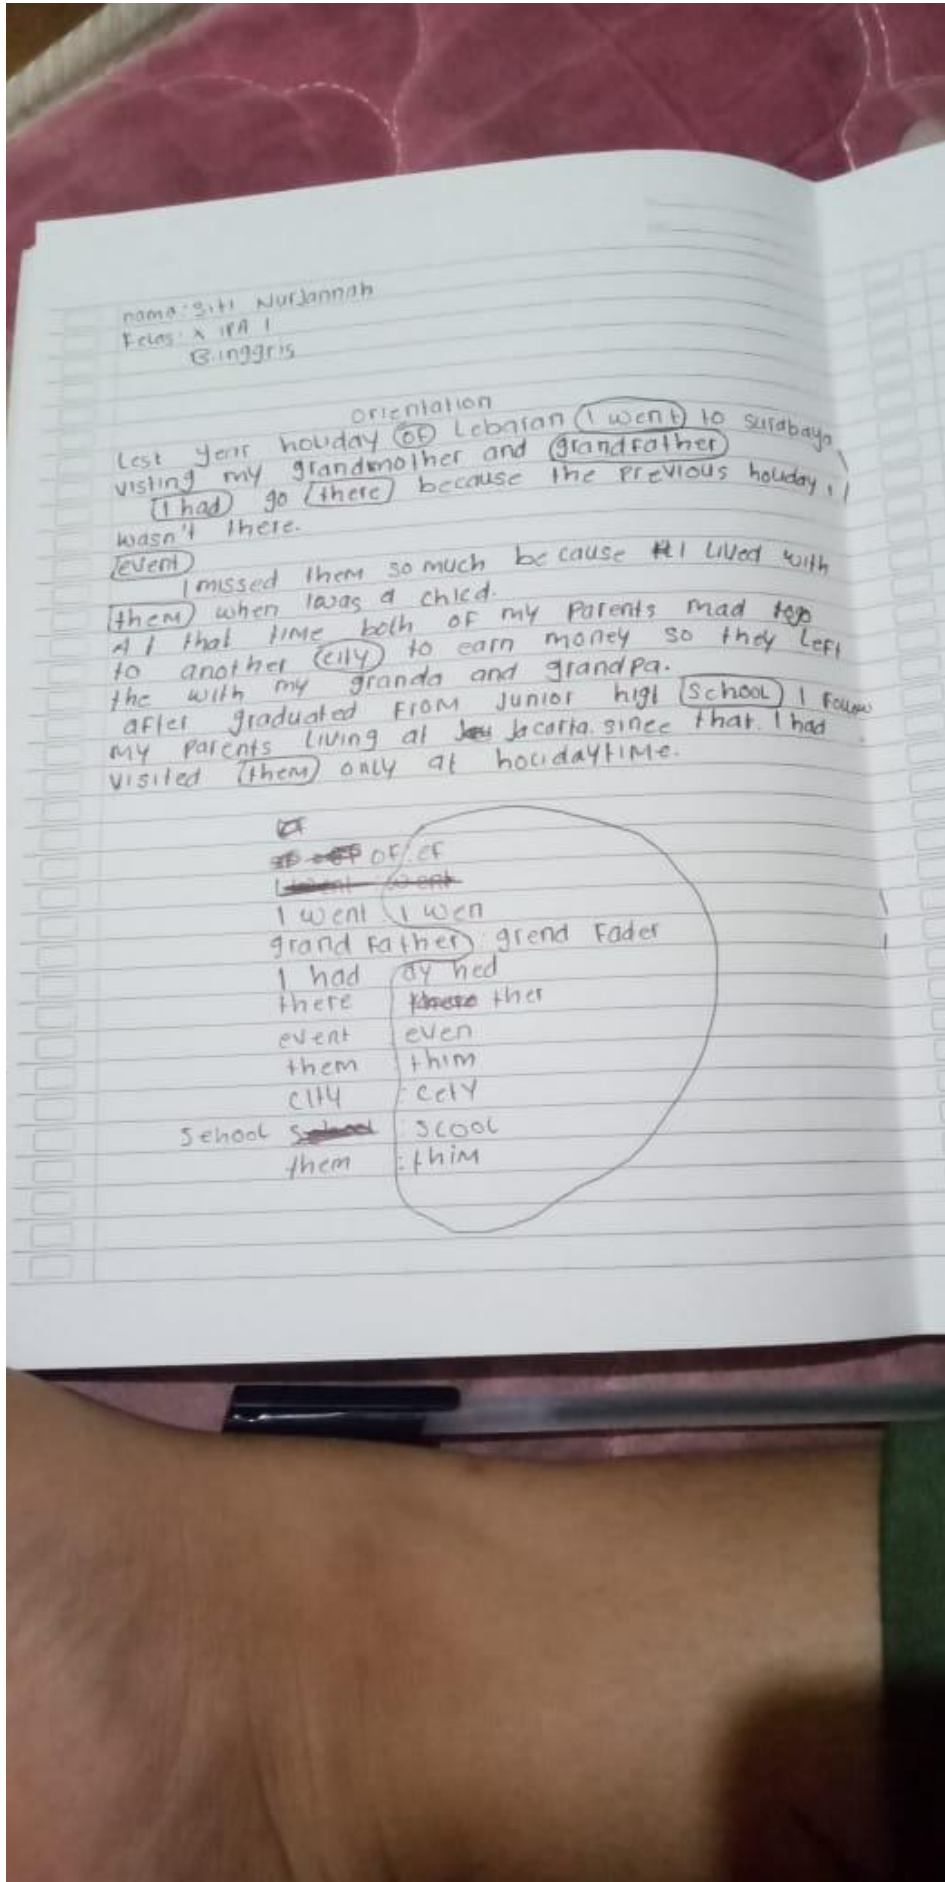 nama: Siti Nurjannah
Kelas: X IPA 1
B. inggris
orientation
Lest year holiday of Lebaran I went to surabaya
visting my grandmother and grandfather
I had go there because the previous holiday, I
wasn't there.
event
I missed them so much because I lived with
them when I was a child.
At that time both of my parents mad
to another city to earn money so they left
the with my granda and grandpa.
after graduated from Junior higt school I follow
my parents living at Jacarta. since that. I had
visited them only at holidaytime.
of : ef
I went : I wen
grand father : grend fader
I had : ay hed
there : ther
event : even
them : thim
city : cety
School : scool
them : thim